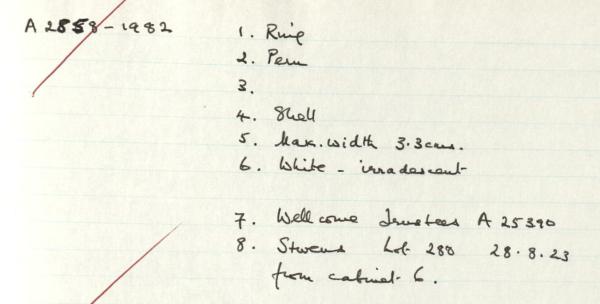 A 2858-1982
1. Ring
2. Peru
3.
4. Shell
5. Max. width 3.3cms.
6. White - irradescent
7. Wellcome Trustees A 25390
8. Stevens Lot 280 28.8.23
from cabinet 6.